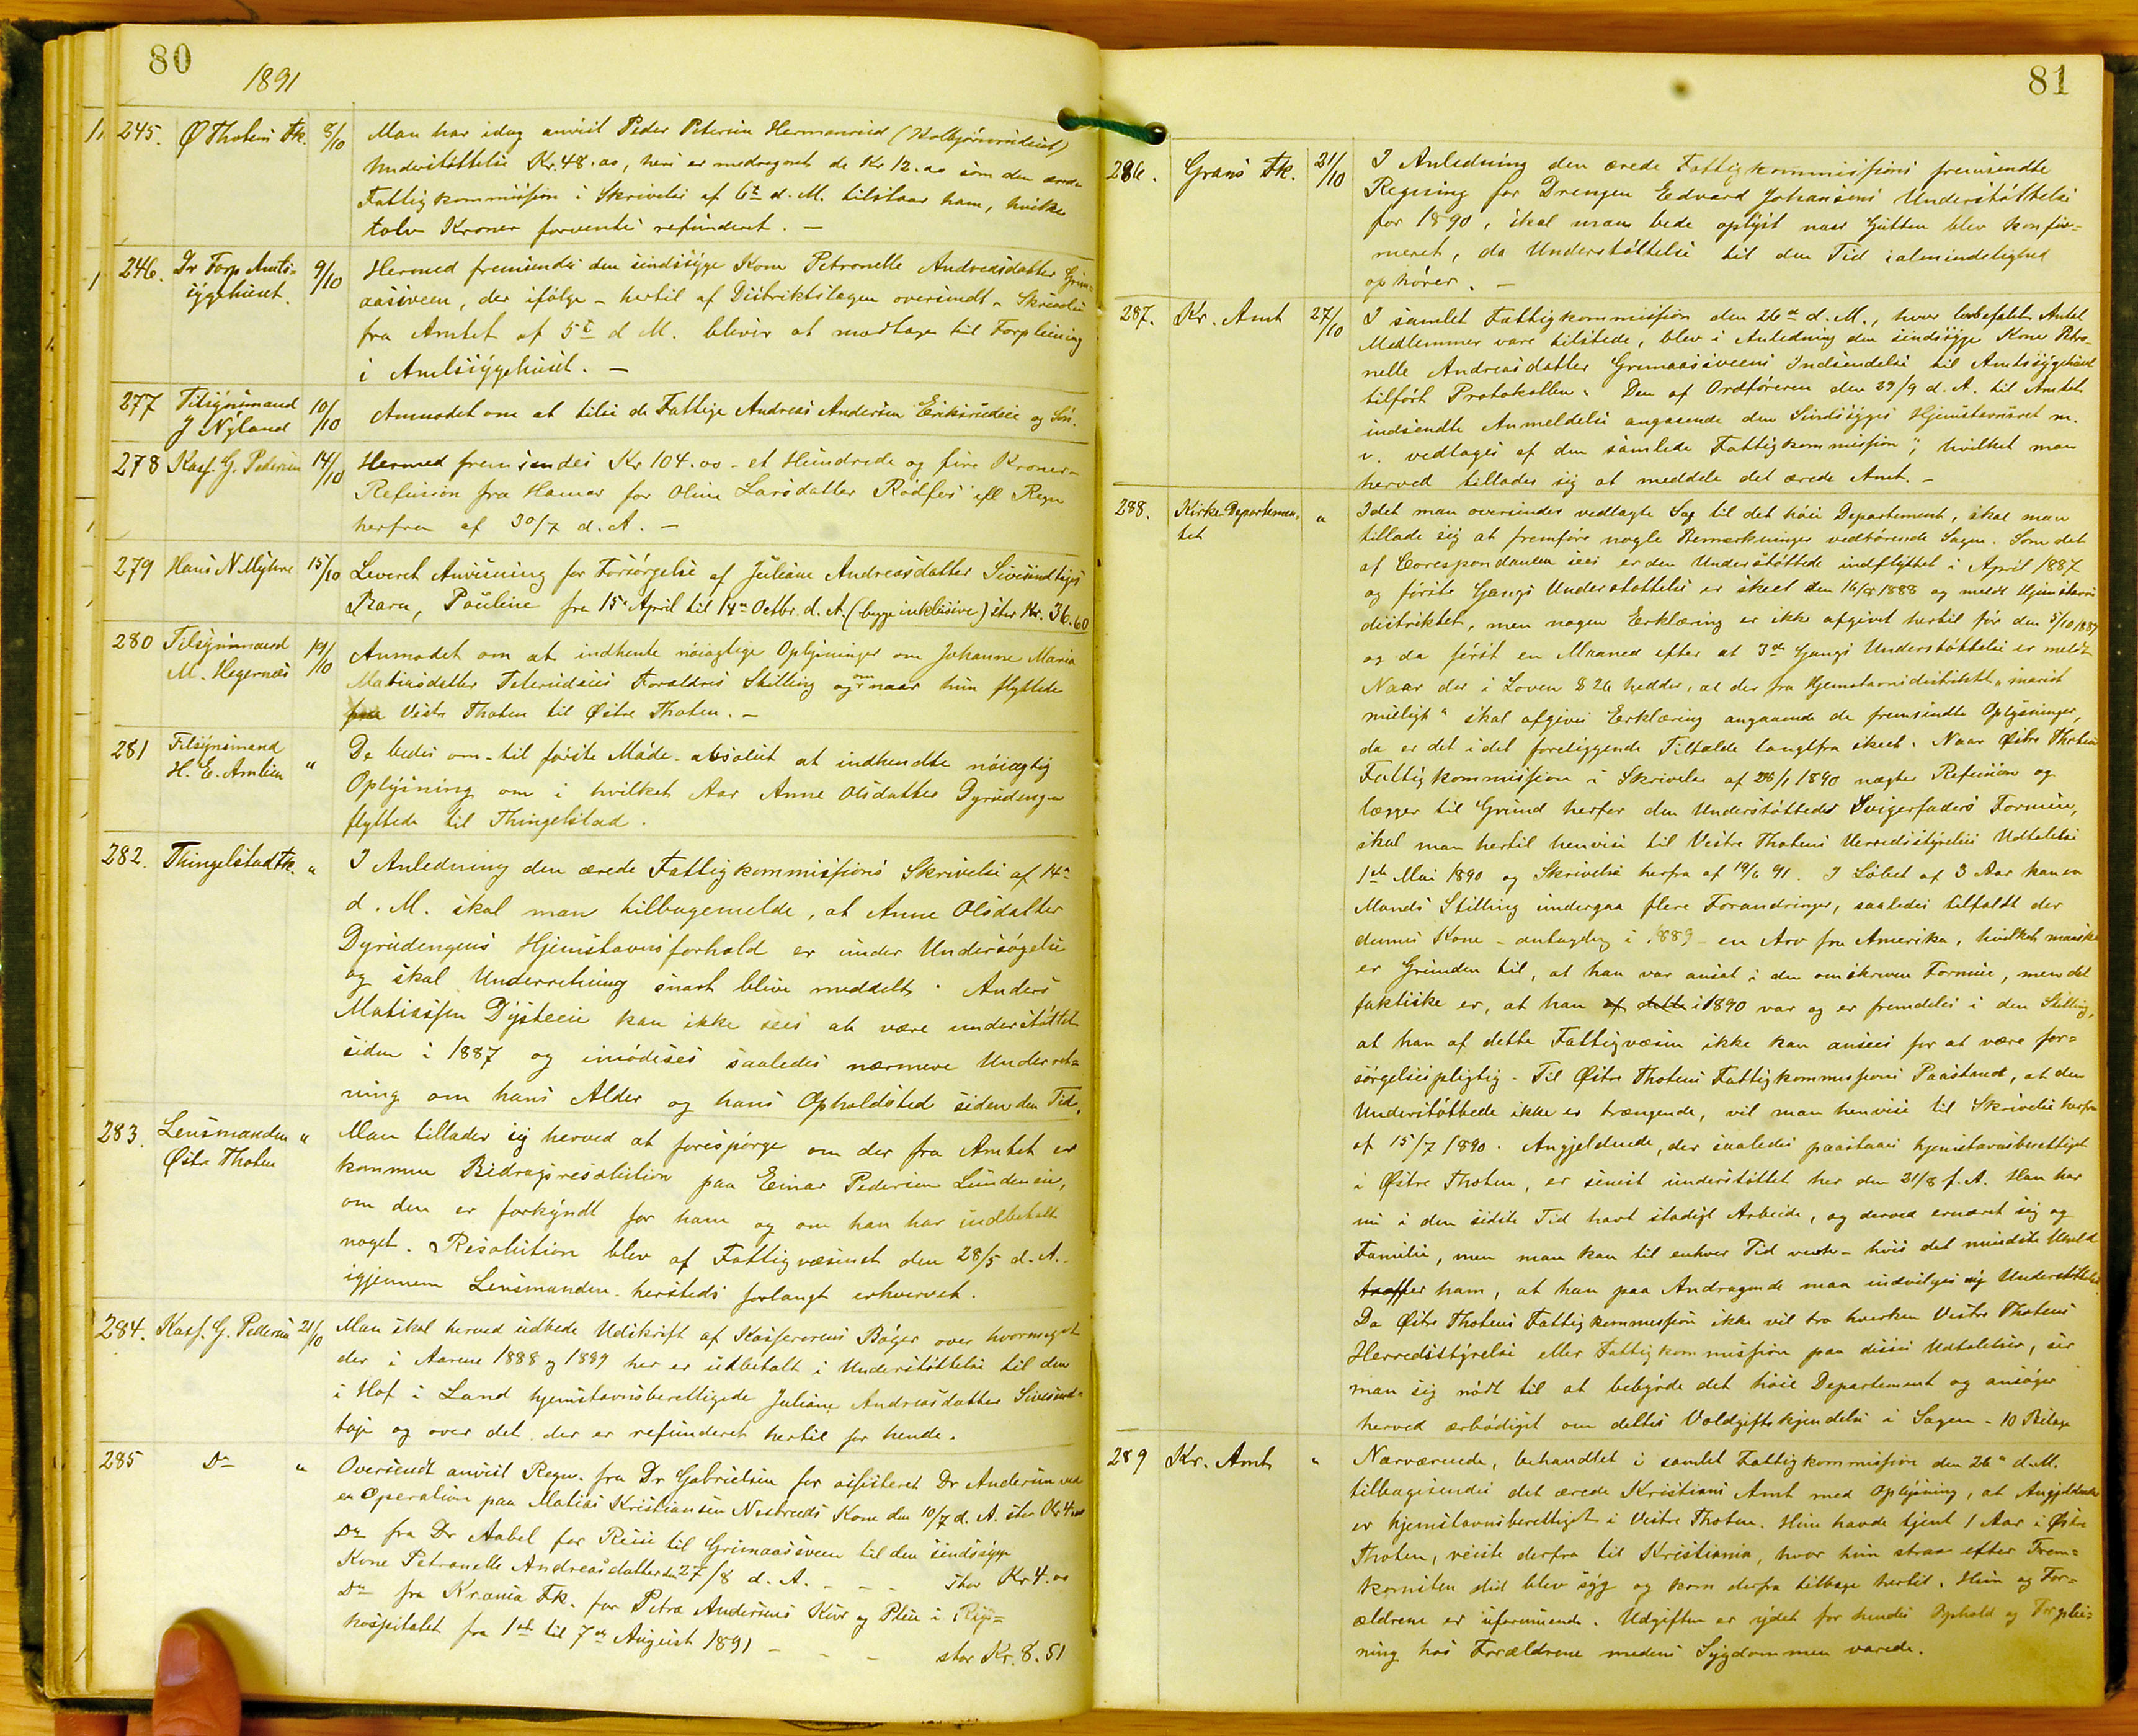 80
1891
245. Ø Thotens Fk. 8/10 Man har idag anvist Peder Petersen Hermanrud
Understøttelse Kr. 48.00, heri er medregnet de Kr 12.00 som den ærede
Fattigkommission i Skrivelse af 6te d. M. tilstaar ham, hvilke
tolv Kroner forventes refunderet. —
246. Dr Torp Amts- 9/10 Hermed fremsendes den sindssyge Kone Petronelle Andreasdatter Grim-
sygehuset. aassveen, der ifølge - hertil af Distriktslægen oversendt - Skrivelse
fra Amtet af 5te d M. bliver at modtage til Forpleining
i Amtssygehuset. —
277 Tilsynsmand 10/10 Anmodet om at tilse de Fattige Andreas Andersen Eriksrudeie og Søn.
J Nyland
278 Kass. G. Pedersen 14/10 Hermed fremsendes Kr 104.00 - et Hundrede og fire Kroner -
Refusion fra Hamar for Oline Larsdatter Rødfos efl Regn
herfra af 30/7 d. A. —
279 Hans N Myhre 15/10 Leveret Anvisning for Forsørgelse af Juliane Andreasdatter Sivesindtajes
Barn, Pauline fra 15de April til 14de Octbr. d. A. (begge inklusive) stor Kr. 36.60
280 Tilsynsmand 19/10 Anmodet om at indhente nøiagtige Oplysninger om Johanne Maria
M. Hegernæs Matiasdatter Forældres Stilling og om naar hun flyttede
fra Vestre Thoten til Østre Thoten. —
281 Tilsynsmand " De bedes om - til første Møde - absolut at indhendte nøiagtig
H. E. Amlien Oplysning om i hvilket Aar Anne Olsdatter Dyrudengen
flyttede til Thingelstad.
282. Thingelstad Fk. " I Anledning den ærede Fattigkommissions Skrivelse af 14de
d. M. skal man tilbagemelde, at Anne Olsdatter
Dyrudengens Hjemstavnsforhold er under Undersøgelse
og skal Underretning snart blive meddelt. Anders
Matiassen Dysteeie kan ikke sees at være understøttet
siden i 1887 og imødeses saaledes nærmere Underret-
ning om hans Alder og hans Opholdsted siden den Tid.
283. Lensmanden " Man tillader sig herved at forespørge om der fra Amtet er
Østre Thoten kommen Bidragsresolution paa Einar Pedersen Lundeneie,
om den er forkyndt for ham og om han har indbetalt
noget. Resolution blev af Fattigvæsenet den 28/5 d. A.
igjennem Lensmanden hersteds forlangt erhvervet.
284. Kass. G. Pedersen 21/10 Man skal herved udbede Udskrift af Kassererens Bøger over hvormeget
der i Aarene 1888 og 1889 her er utbetalt i Understøttelse til den
i Hof i Land hjemstavnsberettigede Juliane Andreasdatter Sivesind-
taje og over det der er refunderet hertil for hende.
285 Do " Oversendt anvist Regn. fra Dr Gabrielsen for assisteret Dr Andersen ved
en Operation paa Matias Kristiansen Nesbruds Kone den 10/7 d. A. stor Kr 4.00
Do fra Dr Aabel for Reise til Grimaassveen til den sindssyge
Kone Petronelle Andreasdatter den 27/8 d. A. - - - stor Kr 4.00
Do fra Krania Fk. for Petra Andersens Kur og Pleie i Rigs-
hospitalet fra 1ste til 7de August 1891 - - - stor Kr. 8.51
81
286. Grans Fk. 21/10 I Anledning den ærede Fattigkommissions fremsendte
Regning for Drengen Edvard Johansens Understøttelse
for 1890, skal man bede oplyst naar Gutten blev konfir-
meret, da Understøttelse til den Tid i almindelighed
ophører. —
287. Kr. Amt 27/10 I samlet Fattigkommission den 26de d. M., hvor lovbefalt Antal
Medlemmer vare tilstede, blev i Anledning den sindssyge Kone Petro-
nelle Andreasdatter Grimaassveens Indsendelse til Amtssygehuset
tilført Protokollen: Den af Ordføreren den 29/9 d. A. til Amtet
indsendte Anmeldelse angaaende den Sindssyges Hjemstavnsret m.
v. vedtages af den samlede Fattigkommission", hvilket man
herved tillader sig at meddele det ærede Amt. —
288. Kirke-Departemen- " Idet man oversender vedlagte Sag til det høie Departement, skal man
tet tillade sig at fremføre nogle Bemærkninger vedrørende Sagen. Som det
af Corespondancen sees er den Understøttede indflyttet i April 1887
og første Gangs Understøttelse er skeet den 16/8 1888 og meldt Hjemstavns
distriktet, men nogen Erklæring er ikke afgivet hertil før den 5/10 1889
og da først en Maaned efter at 3de Gangs Understøttelse er meldt
Naar der i Loven § 26 hedder, at der fra Hjemstavnsdistriktet "snarest
muligt" skal afgives Erklæring angaaende de fremsendte Oplysninger,
da er det i det foreliggende Tilfælde langtfra skeet. Naar Østre Thotens
Fattigkommission i Skrivelse af 28/1 1890 nægter Refusion og
lægger til Grund herfor den Understøttedes Svigerfaders Formue,
skal man hertil henvise til Vestre Thotens Herredsstyrelses Udtalelse
1ste Mai 1890 og Skrivelse herfra af 19/6 91. I Løbet af 3 Aar kan en
Mands Stilling undergaa flere Forandringer, saaledes tilfaldt der
dennes Kone - antagelig i 1889 - en Arv fra Amerika, hvilket maaske
er Grunden til, at han var anset i den omskreven Formue, men det
faktiske er, at han af dette i 1890 var og er fremdeles i den Stilling,
at han af dette Fattigvæsen ikke kan ansees for at være for-
sørgelsespligtig. Til Østre Thotens Fattigkommissions Paastand, at den
Understøttede ikke er trængende, vil man henvise til Skrivelse herfra
af 15/7 1890. Angjeldende, der saaledes paastaaes hjemstavnsberettiget
i Østre Thoten, er senest understøttet her den 21/8 f. A. Han har
nu i den sidste Tid havt stadigt Arbeide, og derved ernæret sig og
Familie, men man kan til enhver Tid vente - hvis det mindste Uheld
træffer ham, at han paa Andragende maa indvilges ny Understøttelse.
Da Østre Thotens Fattigkommission ikke vil tro hverken Vestre Thotens
Herredsstyrelse eller Fattigkommission paa disses Udtalelser, ser
man sig nødt til at bebyrde det høie Departement og ansøger
herved ærbødigst om dettes Voldgiftskjendelse i Sagen - 10 Bilage
289 Kr. Amt " Nærværende, behandlet i samlet Fattigkommission den 26de d.M.
tilbagesendes det ærede Kristians Amt med Oplysning, at Angjeldende
er hjemstavnsberettiget i Vestre Thoten. Hun havde tjent 1 Aar i Østre
Thoten, reiste derfra til Kristiania, hvor hun strax efter Frem-
komsten did blev syg og kom derfra tilbage hertil. Hun og For-
ældrene er uformuende. Udgiften er ydet for hendes Ophold og Forplei-
ning hos Forældrene medens Sygdommen varede.